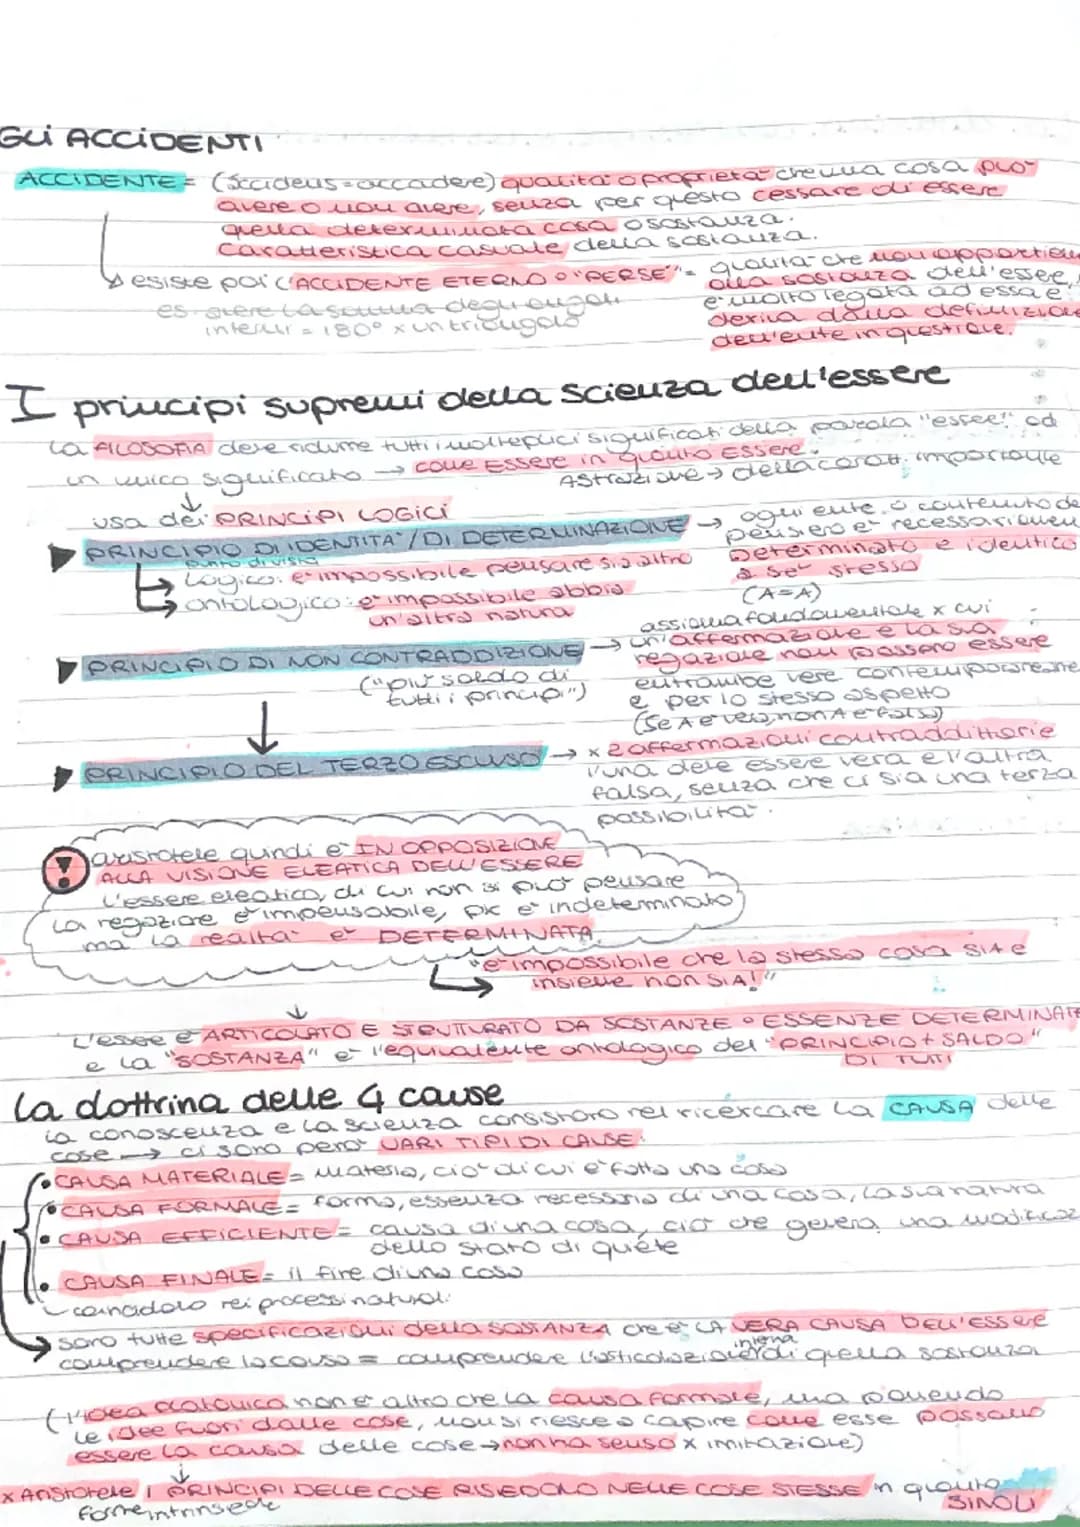 GLI ACCIDENTI
ACCIDENTE = (accideus=accadere) qualità o proprietà che una cosa può
avere o non avere, senza per questo cessare di essere
quella determinata cosa o sostanza.
caratteristica casuale della sostanza.
esiste poi l'"ACCIDENTE ETERNO o "PER SE"" = qualità che non appartien
alla sostanza dell'essee,
è molto legata ad essa e
deriva dalla definizione
dell'ente in questione.
es. avere la somma degli angoli
interni = 180° x un triangolo
I principi supremi della scienza dell'essere
La FILOSOFIA deve ridurre tutti i molteplici significati della parola "essee" ad
un unico significato → come ESSERE in quanto ESSERE.
ASTRAZIONE → della caratt. importante
usa dei PRINCIPI LOGICI
PRINCIPIO DI IDENTITA'/DI DETERMINAZIONE → ogni ente, o contenuto de
pensiero e' necessariamen
Determinato e identico
a se' stesso
(A=A)
punto di vista
Logico: e' impossibile pensare sia altro
ontologico: e' impossibile abbia
un'altra natura
PRINCIPIO DI NON CONTRADDIZIONE → assioma fondamentale x cui
un'affermazione e la sua
negazione non possono essere
entrambe vere contemporaneame
e per lo stesso aspetto
(se A e' vero, non A e' falso)
("piu' saldo di
tutti i principi")
PRINCIPIO DEL TERZO ESCLUSO → x 2 affermazioni contraddittorie
l'una deve essere vera e l'altra
falsa, senza che ci sia una terza
possibilita'.
aristotele quindi e' IN OPPOSIZIONE
ALLA VISIONE ELEATICA DELL'ESSERE
L'essere eleatico, di cui non si puo' pensare
la negazione e' impensabile, pk e' indeterminato
ma la realta' e' DETERMINATA
"e' impossibile che la stessa cosa SIA e
insieme non SIA!"
L'essere e' ARTICOLATO E STRUTTURATO DA SOSTANZE o ESSENZE DETERMINATE
e la "SOSTANZA" e' l'equivalente ontologico del "PRINCIPIO + SALDO"
DI TUTTI
La dottrina delle 4 cause
la conoscenza e la scienza consistono nel ricercare la CAUSA delle
cose → ci sono pero' VARI TIPI DI CAUSE:
• CAUSA MATERIALE = materia, cio' di cui e' fatta una cosa
• CAUSA FORMALE = forma, essenza necessaria di una cosa, la sua natura
• CAUSA EFFICIENTE = causa di una cosa, cio' che genera una modificaz
dello stato di quiete
• CAUSA FINALE = il fine di una cosa
coincidono nei processi naturali
sono tutte specificazioni della SOSTANZA che e' LA VERA CAUSA DELL'ESSERE
interna
comprendere la causa = comprendere l'articolazione di quella sostanza
(l'idea platonica non e' altro che la causa formale, ma ponendo
le idee fuori dalle cose, non si riesce a capire come esse possano
essere la causa delle cose → non ha senso x imitazione)
x Aristotele i PRINCIPI DELLE COSE RISIEDONO NELLE COSE STESSE in quanto
forme intrinseche
SINOLI